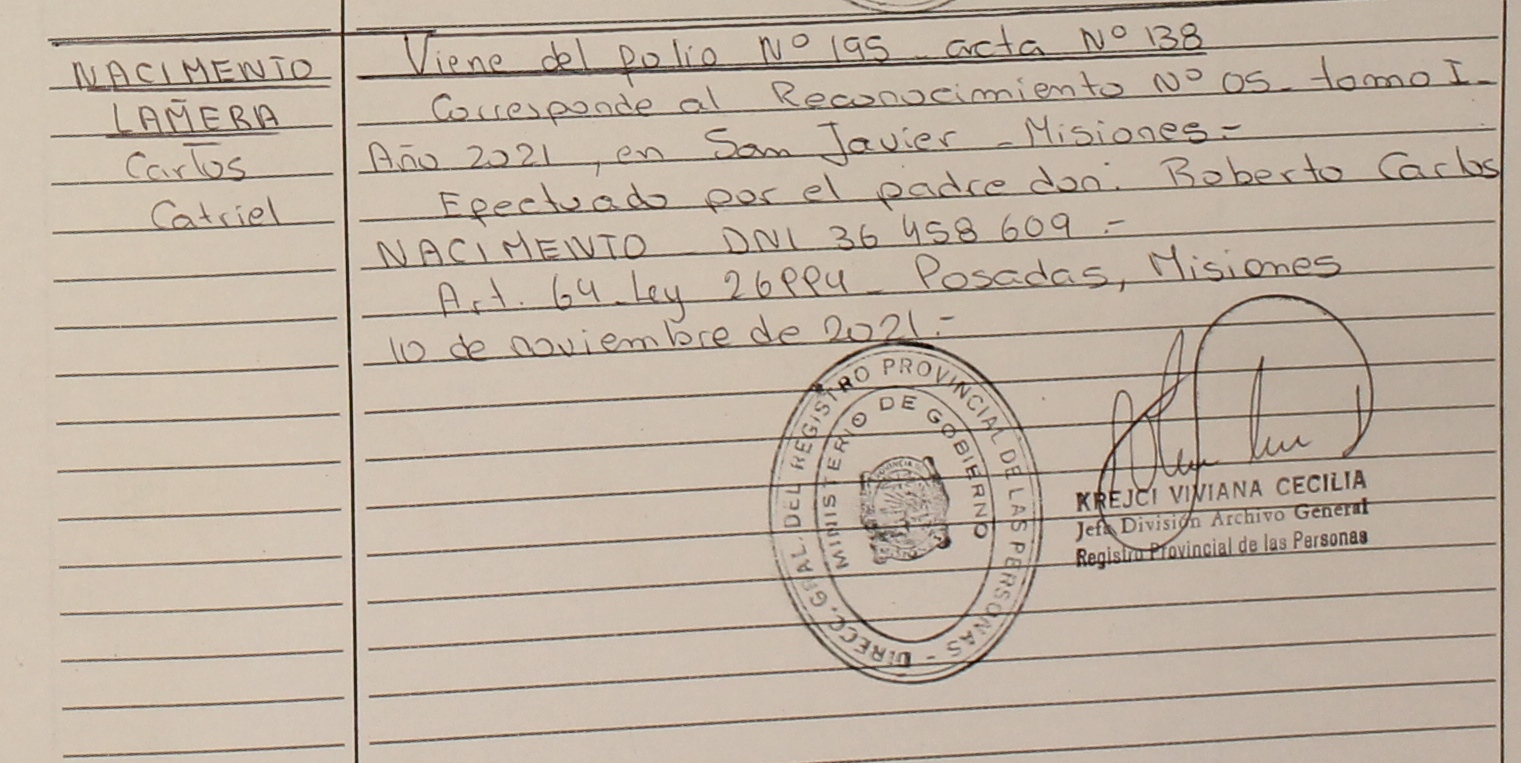 NACIMENTO
LAÑERA
Carlos
Catriel
Viene del folio Nº 195 - acta Nº 138
Corresponde al Reconocimiento Nº 05 - tomo I -
Año 2021, en San Javier - Misiones.-
Efectuado por el padre don: Roberto Carlos
NACIMENTO - DNI 36 458 609.-
Art. 64 - Ley 26994 - Posadas, Misiones
10 de noviembre de 2021.-
DIRECC. GRAL. DEL REGISTRO PROVINCIAL DE LAS PERSONAS -
MINISTERIO DE GOBIERNO
KREJCI VIVIANA CECILIA
Jefa División Archivo General
Registro Provincial de las Personas